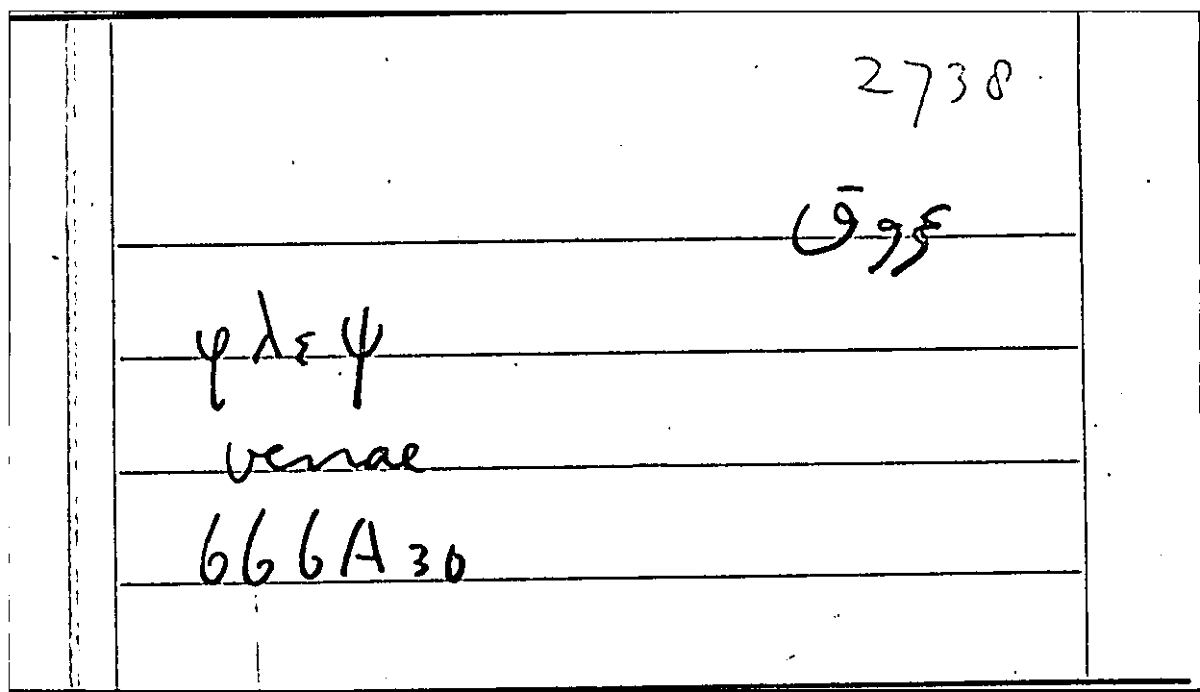 2738
عروق
φλεψ
venae
666A30